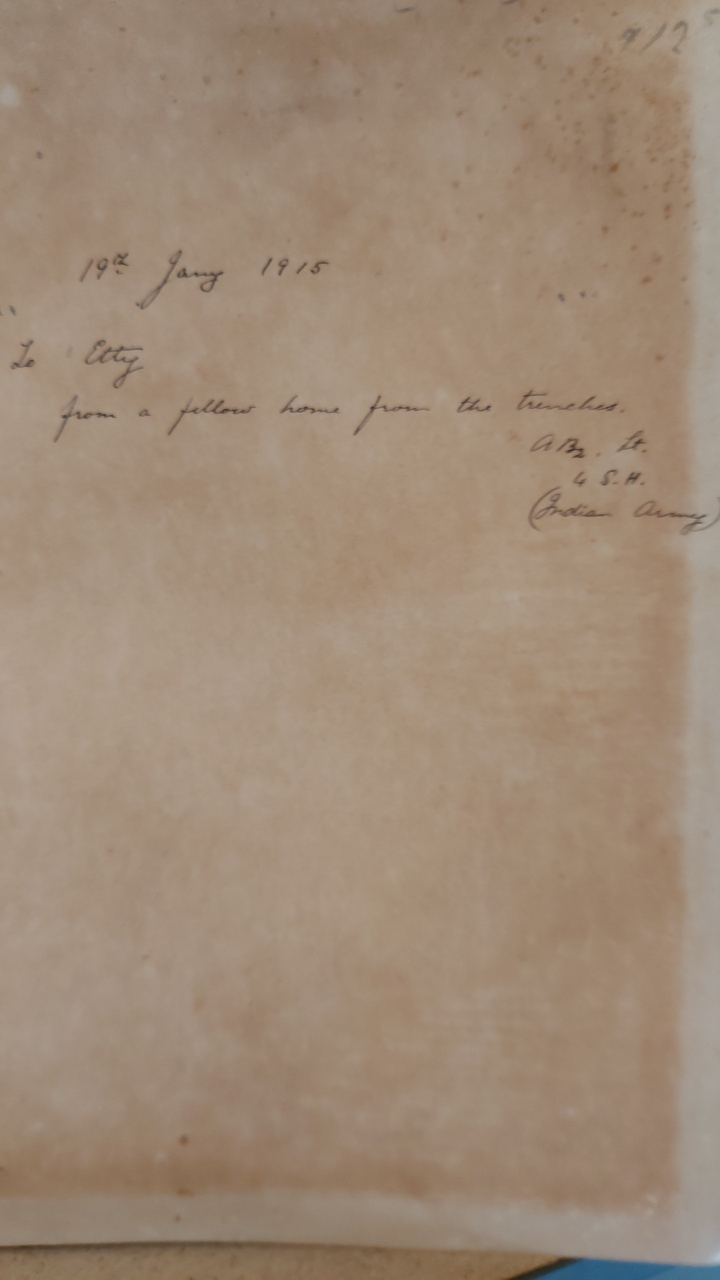 19th Jany 1915
To Etty
from a fellow home from the trenches.
Lt.
4 S.H.
(Indian Army)